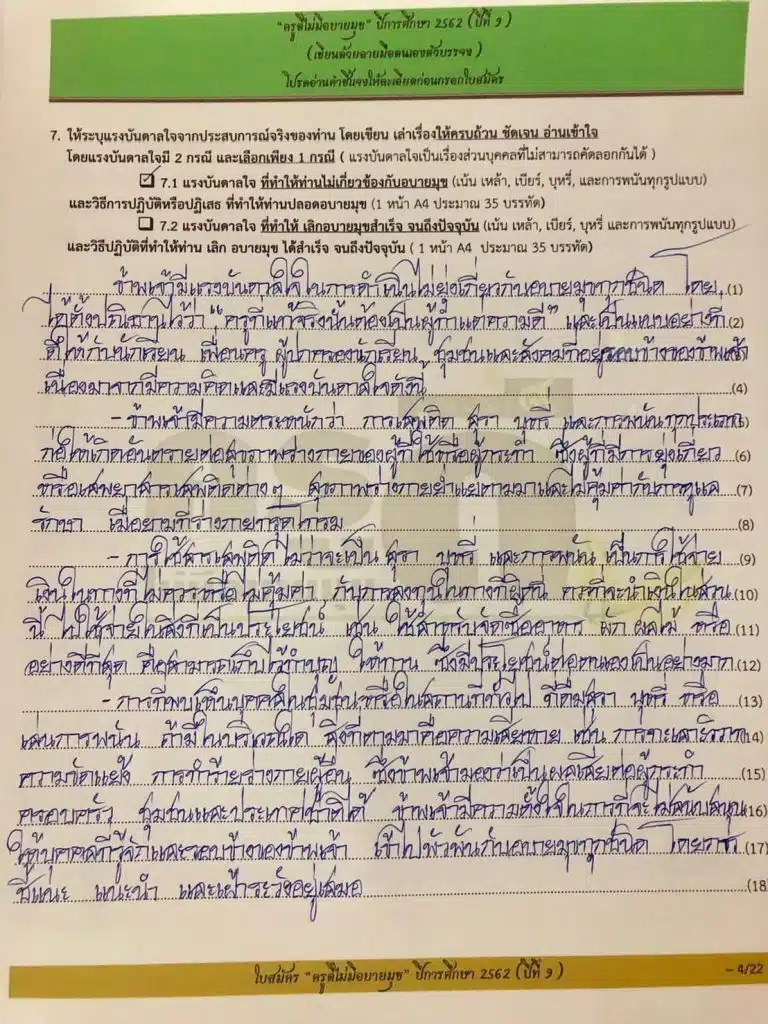 "ครูดีไม่มีอบายมุข" ปีการศึกษา 2562 (ปีที่ 9)
(เขียนด้วยลายมือตนเองตัวบรรจง)
โปรดอ่านคำชี้แจงให้ละเอียดก่อนกรอกใบสมัคร
7. ให้ระบุแรงบันดาลใจจากประสบการณ์จริงของท่าน โดยเขียน เล่าเรื่องให้ครบถ้วน ชัดเจน อ่านเข้าใจ
โดยแรงบันดาลใจมี 2 กรณี และเลือกเพียง 1 กรณี ( แรงบันดาลใจเป็นเรื่องส่วนบุคคลที่ไม่สามารถคัดลอกกันได้ )
7.1 แรงบันดาลใจ ที่ทำให้ท่านไม่เกี่ยวข้องกับอบายมุข (เน้น เหล้า, เบียร์, บุหรี่, และการพนันทุกรูปแบบ)
และวิธีการปฏิบัติหรือปฏิเสธ ที่ทำให้ท่านปลอดอบายมุข (1 หน้า A4 ประมาณ 35 บรรทัด)
7.2 แรงบันดาลใจ ที่ทำให้ เลิกอบายมุขสำเร็จ จนถึงปัจจุบัน (เน้น เหล้า, เบียร์, บุหรี่ และการพนันทุกรูปแบบ)
และวิธีปฏิบัติที่ทำให้ท่าน เลิก อบายมุข ได้สำเร็จ จนถึงปัจจุบัน ( 1 หน้า A4 ประมาณ 35 บรรทัด)
ข้าพเจ้ามีแรงบันดาลใจในการดำเนินไม่ยุ่งเกี่ยวกับอบายมุขทุกชนิด โดย (1)
ได้ตั้งปณิธานไว้ว่า "ครูที่แท้จริงนั้นต้องเป็นผู้ทำแต่ความดี" และเป็นแบบอย่างที่ (2)
ดีให้กับนักเรียน เพื่อนครู ผู้ปกครองนักเรียน ชุมชนและสังคมที่อยู่รอบข้างของข้าพเจ้า
เนื่องมาจากมีความคิดและมีแรงบันดาลใจดังนี้ (4)
- ข้าพเจ้ามีความตระหนักว่า การเสพติด สุรา บุหรี่ และการพนันทุกประเภท
ก่อให้เกิดอันตรายต่อสุขภาพร่างกายของผู้ที่ใช้หรือผู้กระทำ ซึ่งผู้ที่มีการยุ่งเกี่ยว (6)
หรือเสพยาสารเสพติดต่าง ๆ สุขภาพร่างกายย่ำแย่ตามมาและไม่คุ้มค่ากับการดูแล (7)
รักษา เมื่อยามที่ร่างกายทรุดโทรม (8)
- การใช้สารเสพติด ไม่ว่าจะเป็น สุรา บุหรี่ และการพนัน เป็นการใช้จ่าย (9)
เงินในทางที่ไม่ควรหรือไม่คุ้มค่า กับการลงทุนในทางที่ผิดนี้ ควรที่จะนำเงินในส่วน (10)
นี้ ไปใช้จ่ายในสิ่งที่เป็นประโยชน์ เช่น ใช้สำหรับจัดซื้ออาหาร ผัก ผลไม้ หรือ (11)
อย่างดีที่สุด คือสามารถเก็บไว้ทำบุญ ให้ทาน ซึ่งมีประโยชน์ต่อตนเองเป็นอย่างมาก (12)
- การที่พบเห็นบุคคลในชุมชนหรือในสถานที่ทั่วไป ที่ดื่มสุรา บุหรี่ หรือ (13)
เล่นการพนัน ถ้ามีในบริเวณใด สิ่งที่ตามมาคือความเสียหาย เช่น การทะเลาะวิวาท (14)
ความขัดแย้ง การทำร้ายร่างกายผู้อื่น ซึ่งข้าพเจ้ามองว่าเป็นผลเสียต่อผู้กระทำ (15)
ครอบครัว ชุมชนและประเทศชาติได้ ข้าพเจ้ามีความตั้งใจในการที่จะไม่สนับสนุน (16)
ให้บุคคลที่รู้จักและรอบข้างของข้าพเจ้า เข้าไปพัวพันกับอบายมุขทุกชนิด โดยการ (17)
ชี้แนะ แนะนำ และเฝ้าระวังอยู่เสมอ (18)
ใบสมัคร "ครูดีไม่มีอบายมุข" ปีการศึกษา 2562 (ปีที่ 9) - 4/22